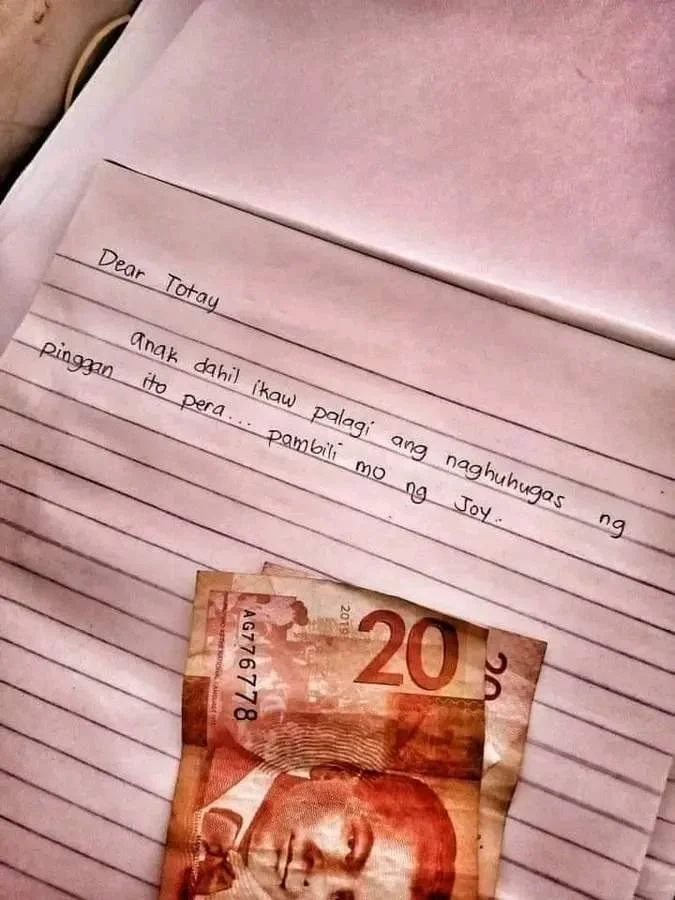 Dear Totay
anak dahil ikaw palagi ang naghuhugas ng
pinggan ito pera... pambili mo ng Joy.
20
2019
AG776778
20